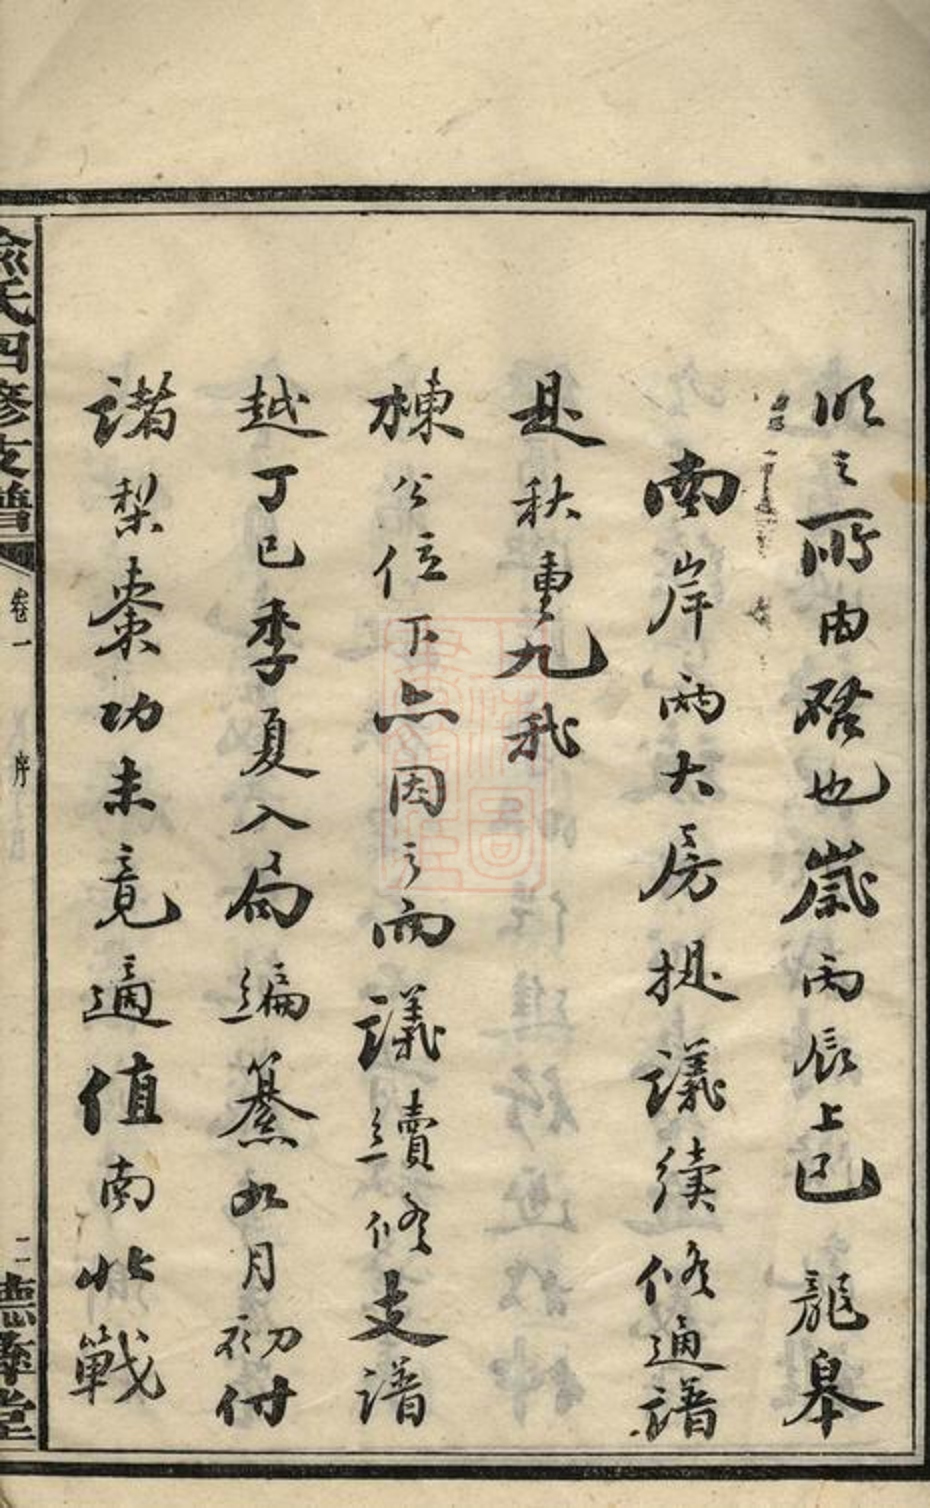 順之所由啓也歲丙辰上巳龍皋
南岸兩大房提議續修通譜
是秋重九我
棟公位下亦因之而議續修支譜
越丁巳季夏入局編纂九月初付
諸梨棗功未竟適值南北戰
俞氏四修支譜 卷一 序 二 德馨堂